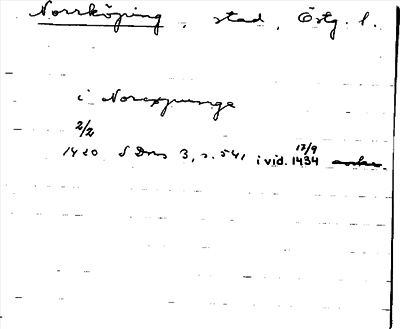 Norrköping, stad, Östg. l.
i Norcopunge
2/2
1420 SDns 3, s. 541 i vid. 17/9 1434